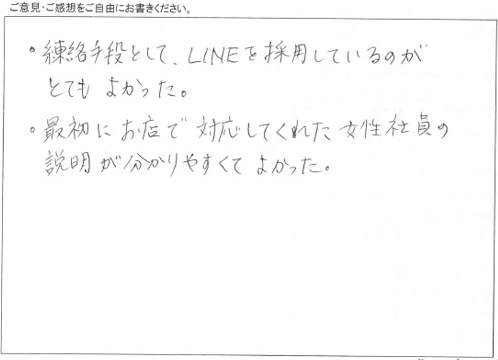 ご意見・ご感想をご自由にお書きください。
・練絡手段として、LINEを採用しているのが
とても よかった。
・最初に お店で 対応してくれた 女性社員の
説明が分かりやすくて よかった。